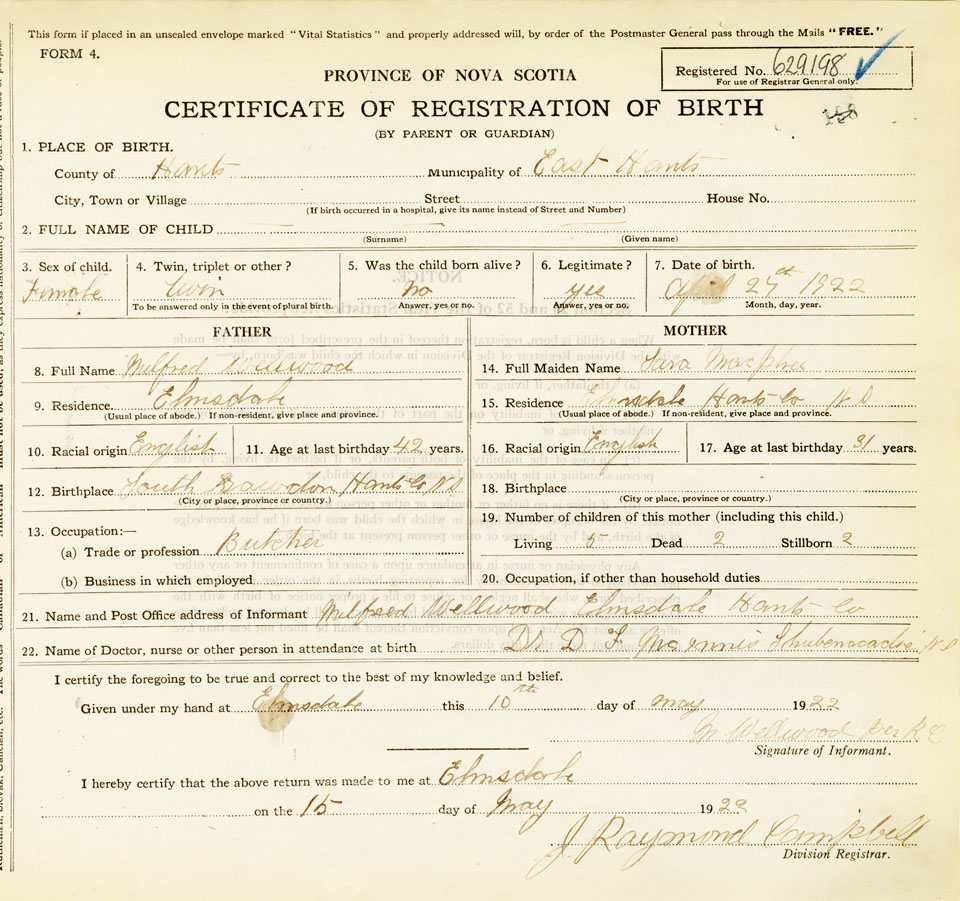 This form if placed in an unsealed envelope marked "Vital Statistics" and properly addressed will, by order of the Postmaster General pass through the Mails "FREE."
FORM 4.
Registered No. 629198
For use of Registrar General only.
PROVINCE OF NOVA SCOTIA
CERTIFICATE OF REGISTRATION OF BIRTH
(BY PARENT OR GUARDIAN)
1. PLACE OF BIRTH.
County of Hants Municipality of East Hants
City, Town or Village Street House No.
(If birth occurred in a hospital, give its name instead of Street and Number)
2. FULL NAME OF CHILD
(Surname) (Given name)
3. Sex of child. 4. Twin, triplet or other? 5. Was the child born alive? 6. Legitimate? 7. Date of birth.
Female Twin no yes April 27th 1922
To be answered only in the event of plural birth. Answer, yes or no. Answer, yes or no. Month, day, year.
FATHER MOTHER
8. Full Name Milfred Wellwood
14. Full Maiden Name Sara MacPhee
9. Residence. Elmsdale
(Usual place of abode.) If non-resident, give place and province.
15. Residence Elmsdale Hants Co N S
(Usual place of abode.) If non-resident, give place and province.
10. Racial origin English 11. Age at last birthday 42 years.
16. Racial origin English 17. Age at last birthday 31 years.
12. Birthplace South Rawdon Hants Co N S
(City or place, province or country.)
18. Birthplace
(City or place, province or country.)
13. Occupation:—
(a) Trade or profession Butcher
(b) Business in which employed
19. Number of children of this mother (including this child.)
Living 5 Dead 2 Stillborn 2
20. Occupation, if other than household duties
21. Name and Post Office address of Informant Milfred Wellwood Elmsdale Hants Co
22. Name of Doctor, nurse or other person in attendance at birth Dr D F McInnis Shubenacadie N S
I certify the foregoing to be true and correct to the best of my knowledge and belief.
Given under my hand at Elmsdale this 10th day of May 1922
M Wellwood Per
Signature of Informant.
I hereby certify that the above return was made to me at Elmsdale
on the 15 day of May 1922
J Raymond Campbell
Division Registrar.